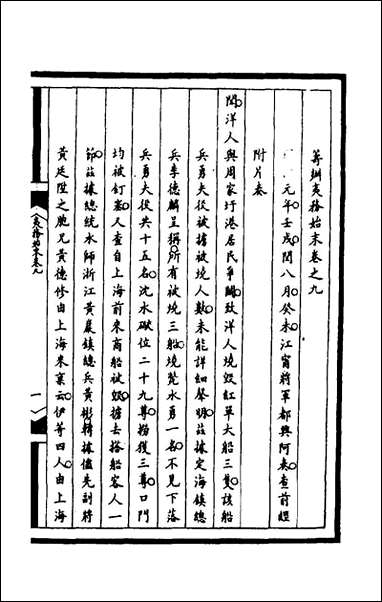 筹辦夷務始末卷之九
元年壬戌閏八月癸未江甯將軍都興阿奏查前經
附片奏
聞洋人與周家圩港居民爭鬭致洋人燒毀紅單大船三隻該船
兵勇夫役被擄被燒人數未能詳細聲明茲據定海鎮總
兵李德麟呈稱所有被燒三船燒斃水勇一名不見下落
兵勇夫役共十五名沈水礮位二十九尊撈獲三尊口門
均被釘塞又查自上海前來商船被毀擄去搭船客人一
節茲據總統水師浙江黃巖鎮總兵黃彬轉據儘先副將
黃廷陞之胞兄黃德修由上海來稟云伊等四人由上海
夷務始末卷九
一